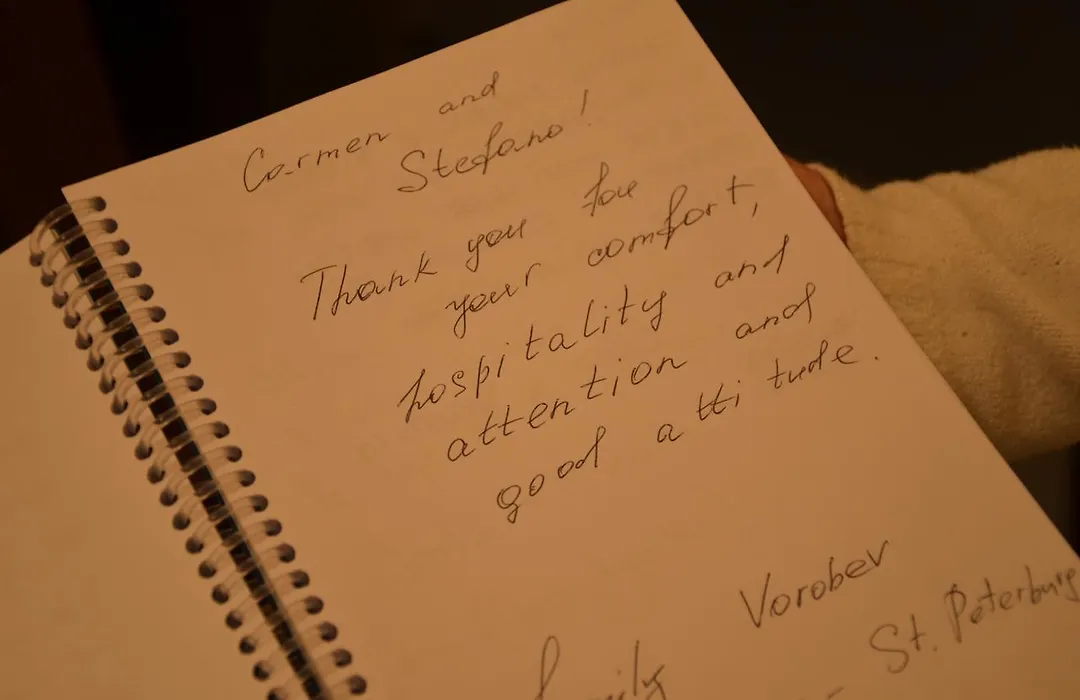 Carmen and
Stefano!
Thank you for
your comfort,
hospitality and
attention and
good attitude.
Vorobev
family
- St. Peterburg